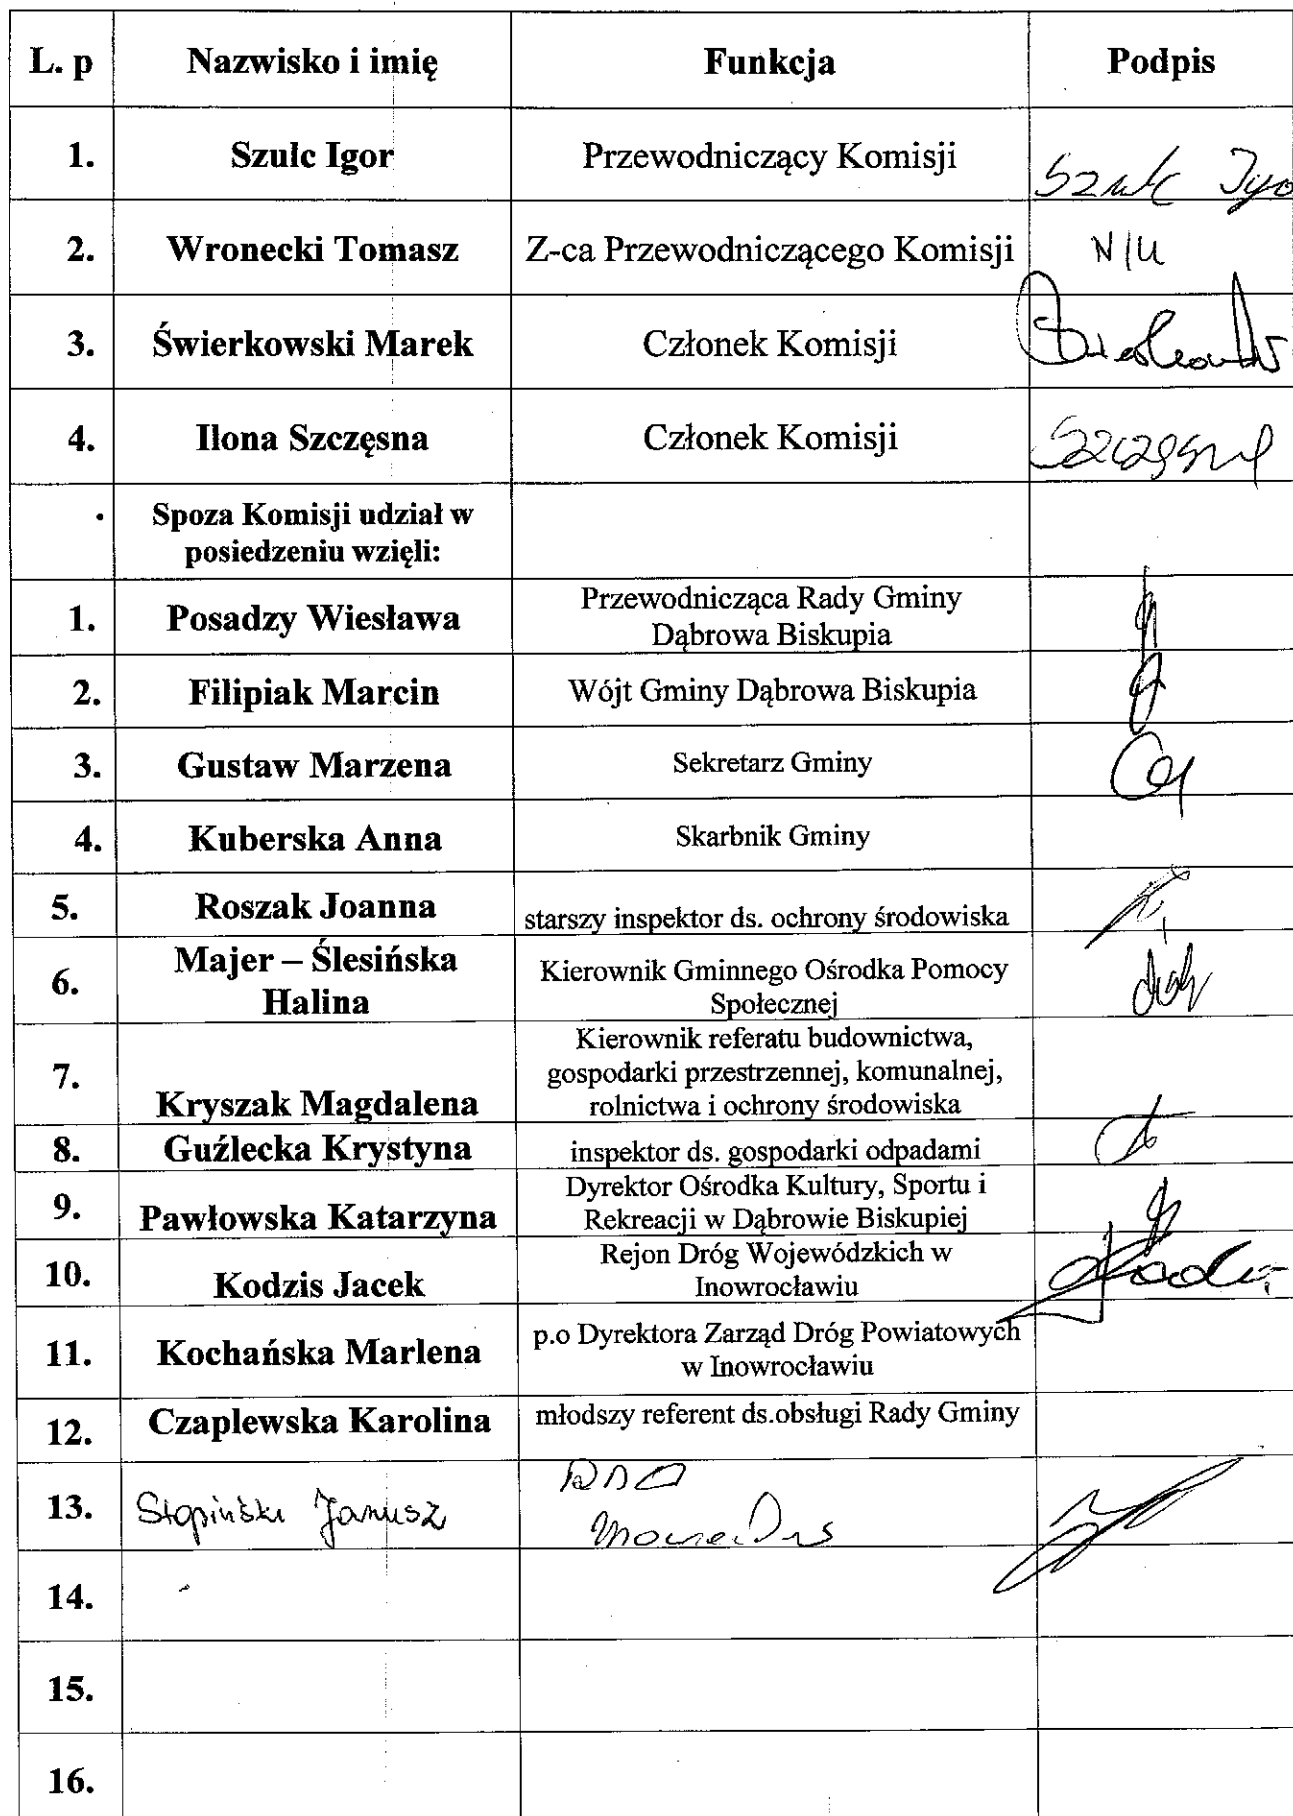 L. p Nazwisko i imię Funkcja Podpis
1. Szulc Igor Przewodniczący Komisji Szulc Igo
2. Wronecki Tomasz Z-ca Przewodniczącego Komisji N/U
3. Świerkowski Marek Członek Komisji
4. Ilona Szczęsna Członek Komisji Szczęsna
Spoza Komisji udział w
posiedzeniu wzięli:
1. Posadzy Wiesława Przewodnicząca Rady Gminy
Dąbrowa Biskupia
2. Filipiak Marcin Wójt Gminy Dąbrowa Biskupia
3. Gustaw Marzena Sekretarz Gminy
4. Kuberska Anna Skarbnik Gminy
5. Roszak Joanna starszy inspektor ds. ochrony środowiska
6. Majer – Ślesińska
Halina Kierownik Gminnego Ośrodka Pomocy
Społecznej
7. Kryszak Magdalena Kierownik referatu budownictwa,
gospodarki przestrzennej, komunalnej,
rolnictwa i ochrony środowiska
8. Guźlecka Krystyna inspektor ds. gospodarki odpadami
9. Pawłowska Katarzyna Dyrektor Ośrodka Kultury, Sportu i
Rekreacji w Dąbrowie Biskupiej
10. Kodzis Jacek Rejon Dróg Wojewódzkich w
Inowrocławiu
11. Kochańska Marlena p.o Dyrektora Zarząd Dróg Powiatowych
w Inowrocławiu
12. Czaplewska Karolina młodszy referent ds.obsługi Rady Gminy
13. Stopiński Janusz
14.
15.
16.